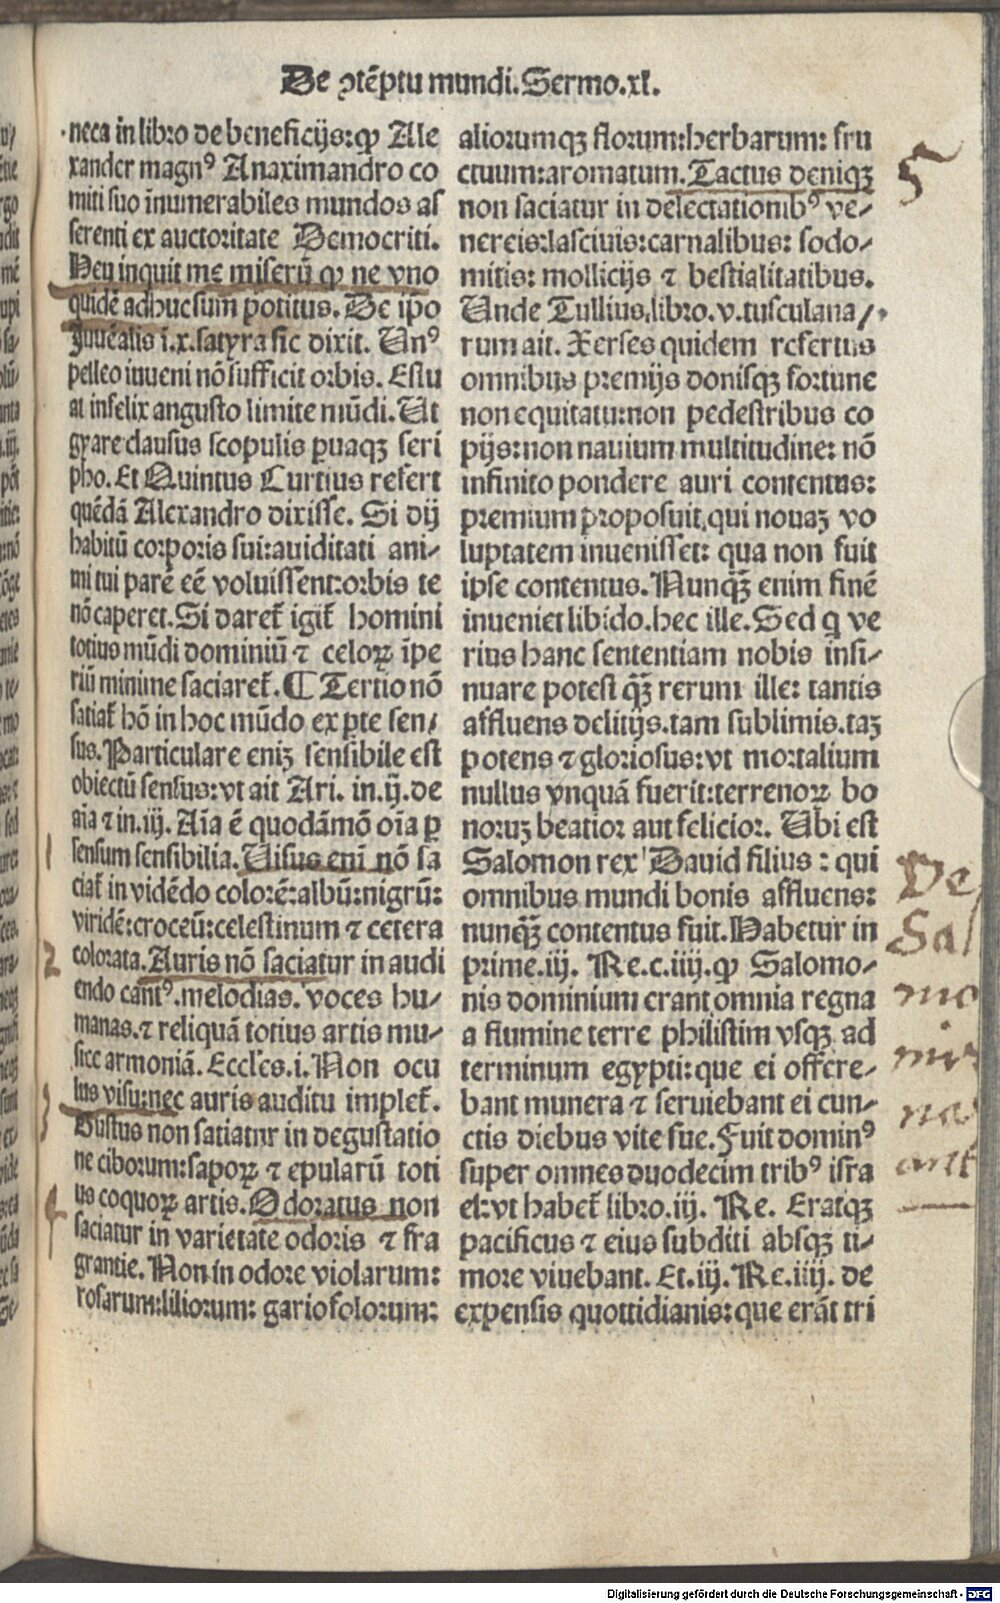 De ↄtēptu mundi. Sermo. xl.
neca in libro de beneficijs: ꝙ Ale
xander magnꝰ Anaximandro co
miti suo īnumerabiles mundos as
serenti ex auctoritate Democriti.
Heu inquit me miserū ꝙ ne vno
quidē adhuc sum potitus. De ip̄o
Juuēalis ī.x. satyra sic dixit. Unꝰ
pelleo iuueni nō sufficit orbis. Estu
at infelix angusto limite mūdi. Ut
gyare clausus scopulis ꝑuaqꝫ seri
pho. Et Quintus Curtius refert
quēdā Alexandro dixisse. Si dij
habitū corporis sui: auiditati ani-
mi tui parē eē voluissent: orbis te
nō caperet. Si daret̄ igit̄ homini
totius mūdi dominiū ⁊ celoꝝ īpe
riū minime saciaret̄. ¶ Tertio nō
satiat̄ hō in hoc mūdo ex ꝑte sen-
sus. Particulare enīꝫ sensibile est
obiectū sensus: vt ait Ari. in. ij. de
aīa ⁊ in. iij. Aīa ē quodāmō oīa ꝑ
1 sensum sensibilia. Uisus enī nō sa
ciat̄ in vidēdo colorē: albū: nigrū:
viridē: croceū: celestinum ⁊ cetera
2 colorata. Auris nō saciatur in audi
endo cantꝰ. melodias. voces hu-
manas. ⁊ reliquā totius artis mu-
sice armoniā. Eccl'es. i. Non ocu
lus visu: nec auris auditu implet̄.
3 Gustus non satiatur in degustatio
ne ciborum: sapoꝝ ⁊ epularū toti
4 us coquoꝝ artis. Odoratus non
saciatur in varietate odoris ⁊ fra
grantie. Non in odore violarum:
rosarum: liliorum: gariofolorum:
aliorumqꝫ florum: herbarum: fru
ctuum: aromatum. Tactus deniqꝫ 5
non saciatur in delectationibꝰ ve-
nereis: lasciuis: carnalibus: sodo-
mitis: mollicijs ⁊ bestialitatibus.
Unde Tullius. libro. v. tusculana-
rum ait. Xerses quidem refertus
omnibus premijs donisqꝫ fortune
non equitatu: non pedestribus co
pijs: non nauium multitudine: nō
infinito pondere auri contentus:
premium proposuit, qui nouaꝫ vo
luptatem inuenisset: qua non fuit
ipse contentus. Nunqꝫ̄ enim finē
inueniet libido. hec ille. Sed q ve
rius hanc sententiam nobis insi-
nuare potest qꝫ̄ rerum ille: tantis
affluens delitijs. tam sublimis. taꝫ
potens ⁊ gloriosus: vt mortalium
nullus vnquā fuerit: terrenoꝝ bo
noruꝫ beatior aut felicior. Ubi est
Salomon rex David filius: qui
omnibus mundi bonis affluens:
nunqꝫ̄ contentus fuit. Habetur in
prime. iij. Re. c. iiij. ꝙ Salomo-
nis dominium erant omnia regna
a flumine terre philistim vsqꝫ ad
terminum egypti: que ei offere-
bant munera ⁊ seruiebant ei cun-
ctis diebus vite sue. Fuit dominꝰ
super omnes duodecim tribꝰ isra
el: vt habet̄ libro. iij. Re. Eratqꝫ
pacificus ⁊ eius subditi absqꝫ ti-
more viuebant. Et. iij. Re. iiij. de
expensis quottidianis: que erāt tri
De
Sal
mo
nis
na
ant
Digitalisierung gefördert durch die Deutsche Forschungsgemeinschaft - DFG